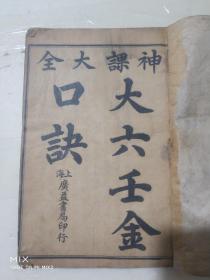 神課大全
大六壬金
口訣
上海
廣益書局印行